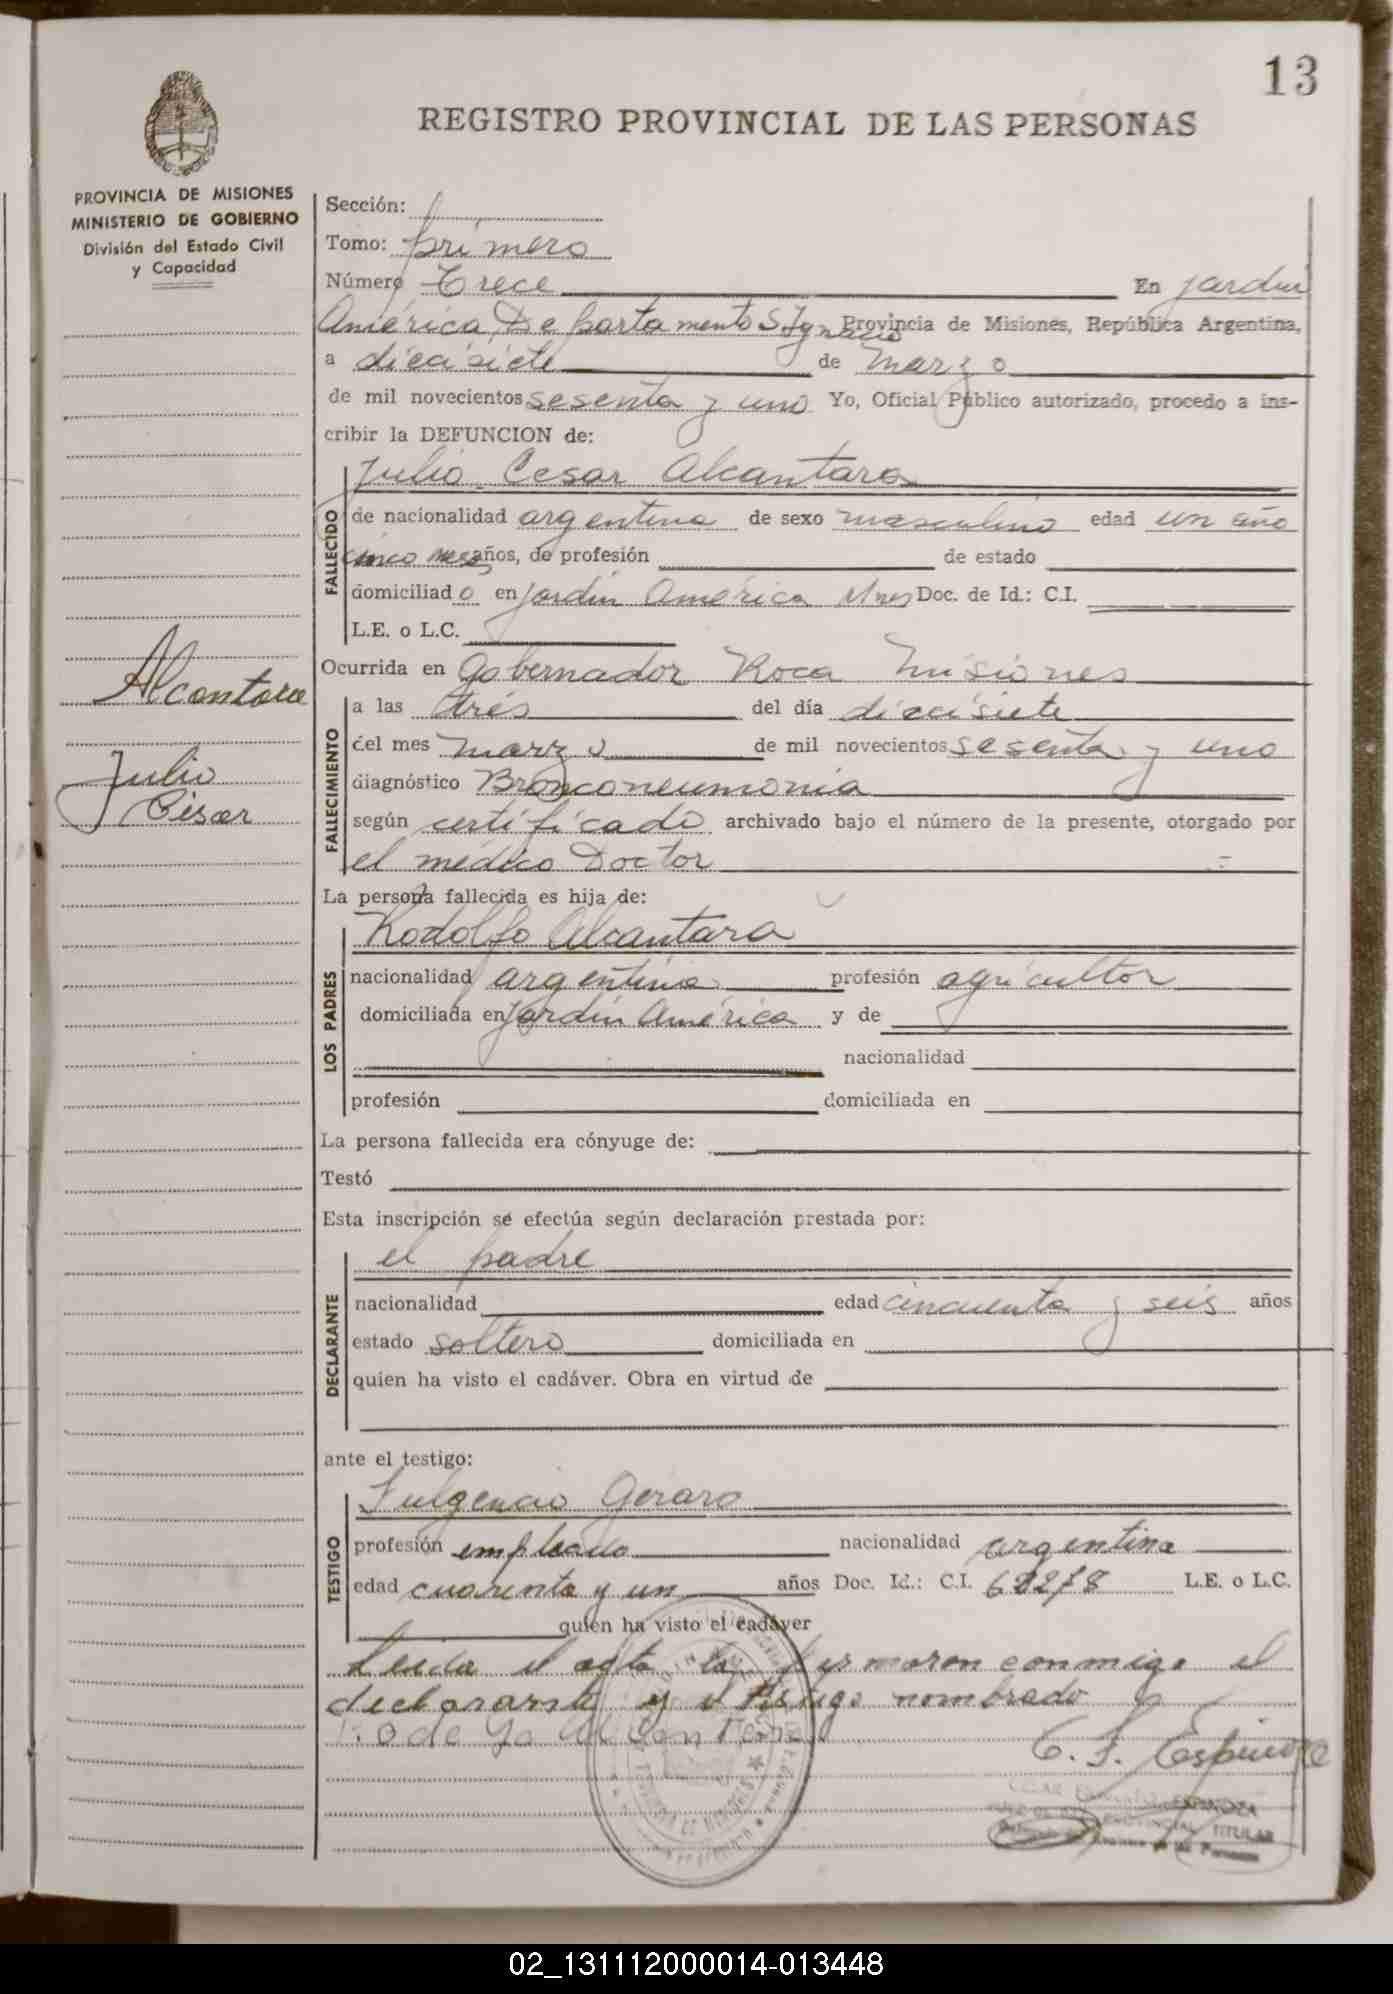 13
REGISTRO PROVINCIAL DE LAS PERSONAS
PROVINCIA DE MISIONES
MINISTERIO DE GOBIERNO
División del Estado Civil
y Capacidad
Sección:
Tomo: primero
Número Trece En Jardin
América, Departamento S. Ignacio Provincia de Misiones, República Argentina,
a diecisiete de marzo
de mil novecientos sesenta y uno Yo, Oficial Público autorizado, procedo a ins-
cribir la DEFUNCION de:
Julio Cesar Alcantara
FALLECIDO
de nacionalidad argentina de sexo masculino edad un año
cinco meses años, de profesión de estado
domiciliado en Jardin América Mnes Doc. de Id.: C.I.
L.E. o L.C.
Alcantara
Julio
César
Ocurrida en Gobernador Roca Misiones
FALLECIMIENTO
a las tres del día diecisiete
del mes marzo de mil novecientos sesenta y uno
diagnóstico Bronconeumonia
según certificado archivado bajo el número de la presente, otorgado por
el médico Doctor
La persona fallecida es hija de:
Rodolfo Alcantara
LOS PADRES
nacionalidad argentina profesión agricultor
domiciliada en Jardin América y de
nacionalidad
profesión domiciliada en
La persona fallecida era cónyuge de:
Testó
Esta inscripción se efectúa según declaración prestada por:
el padre
DECLARANTE
nacionalidad edad cincuenta y seis años
estado soltero domiciliada en
quien ha visto el cadáver. Obra en virtud de
ante el testigo:
Fulgencio Geraro
TESTIGO
profesión empleado nacionalidad argentina
edad cuarenta y un años Doc. Id.: C.I. L.E. o L.C.
quien ha visto el cadáver
Leida el acta la firmaron conmigo el
declarante y el testigo nombrado
C. F. Espinoza
ESPINOZA
PROVINCIAL TITULAR
de las Personas
02_131112000014-013448